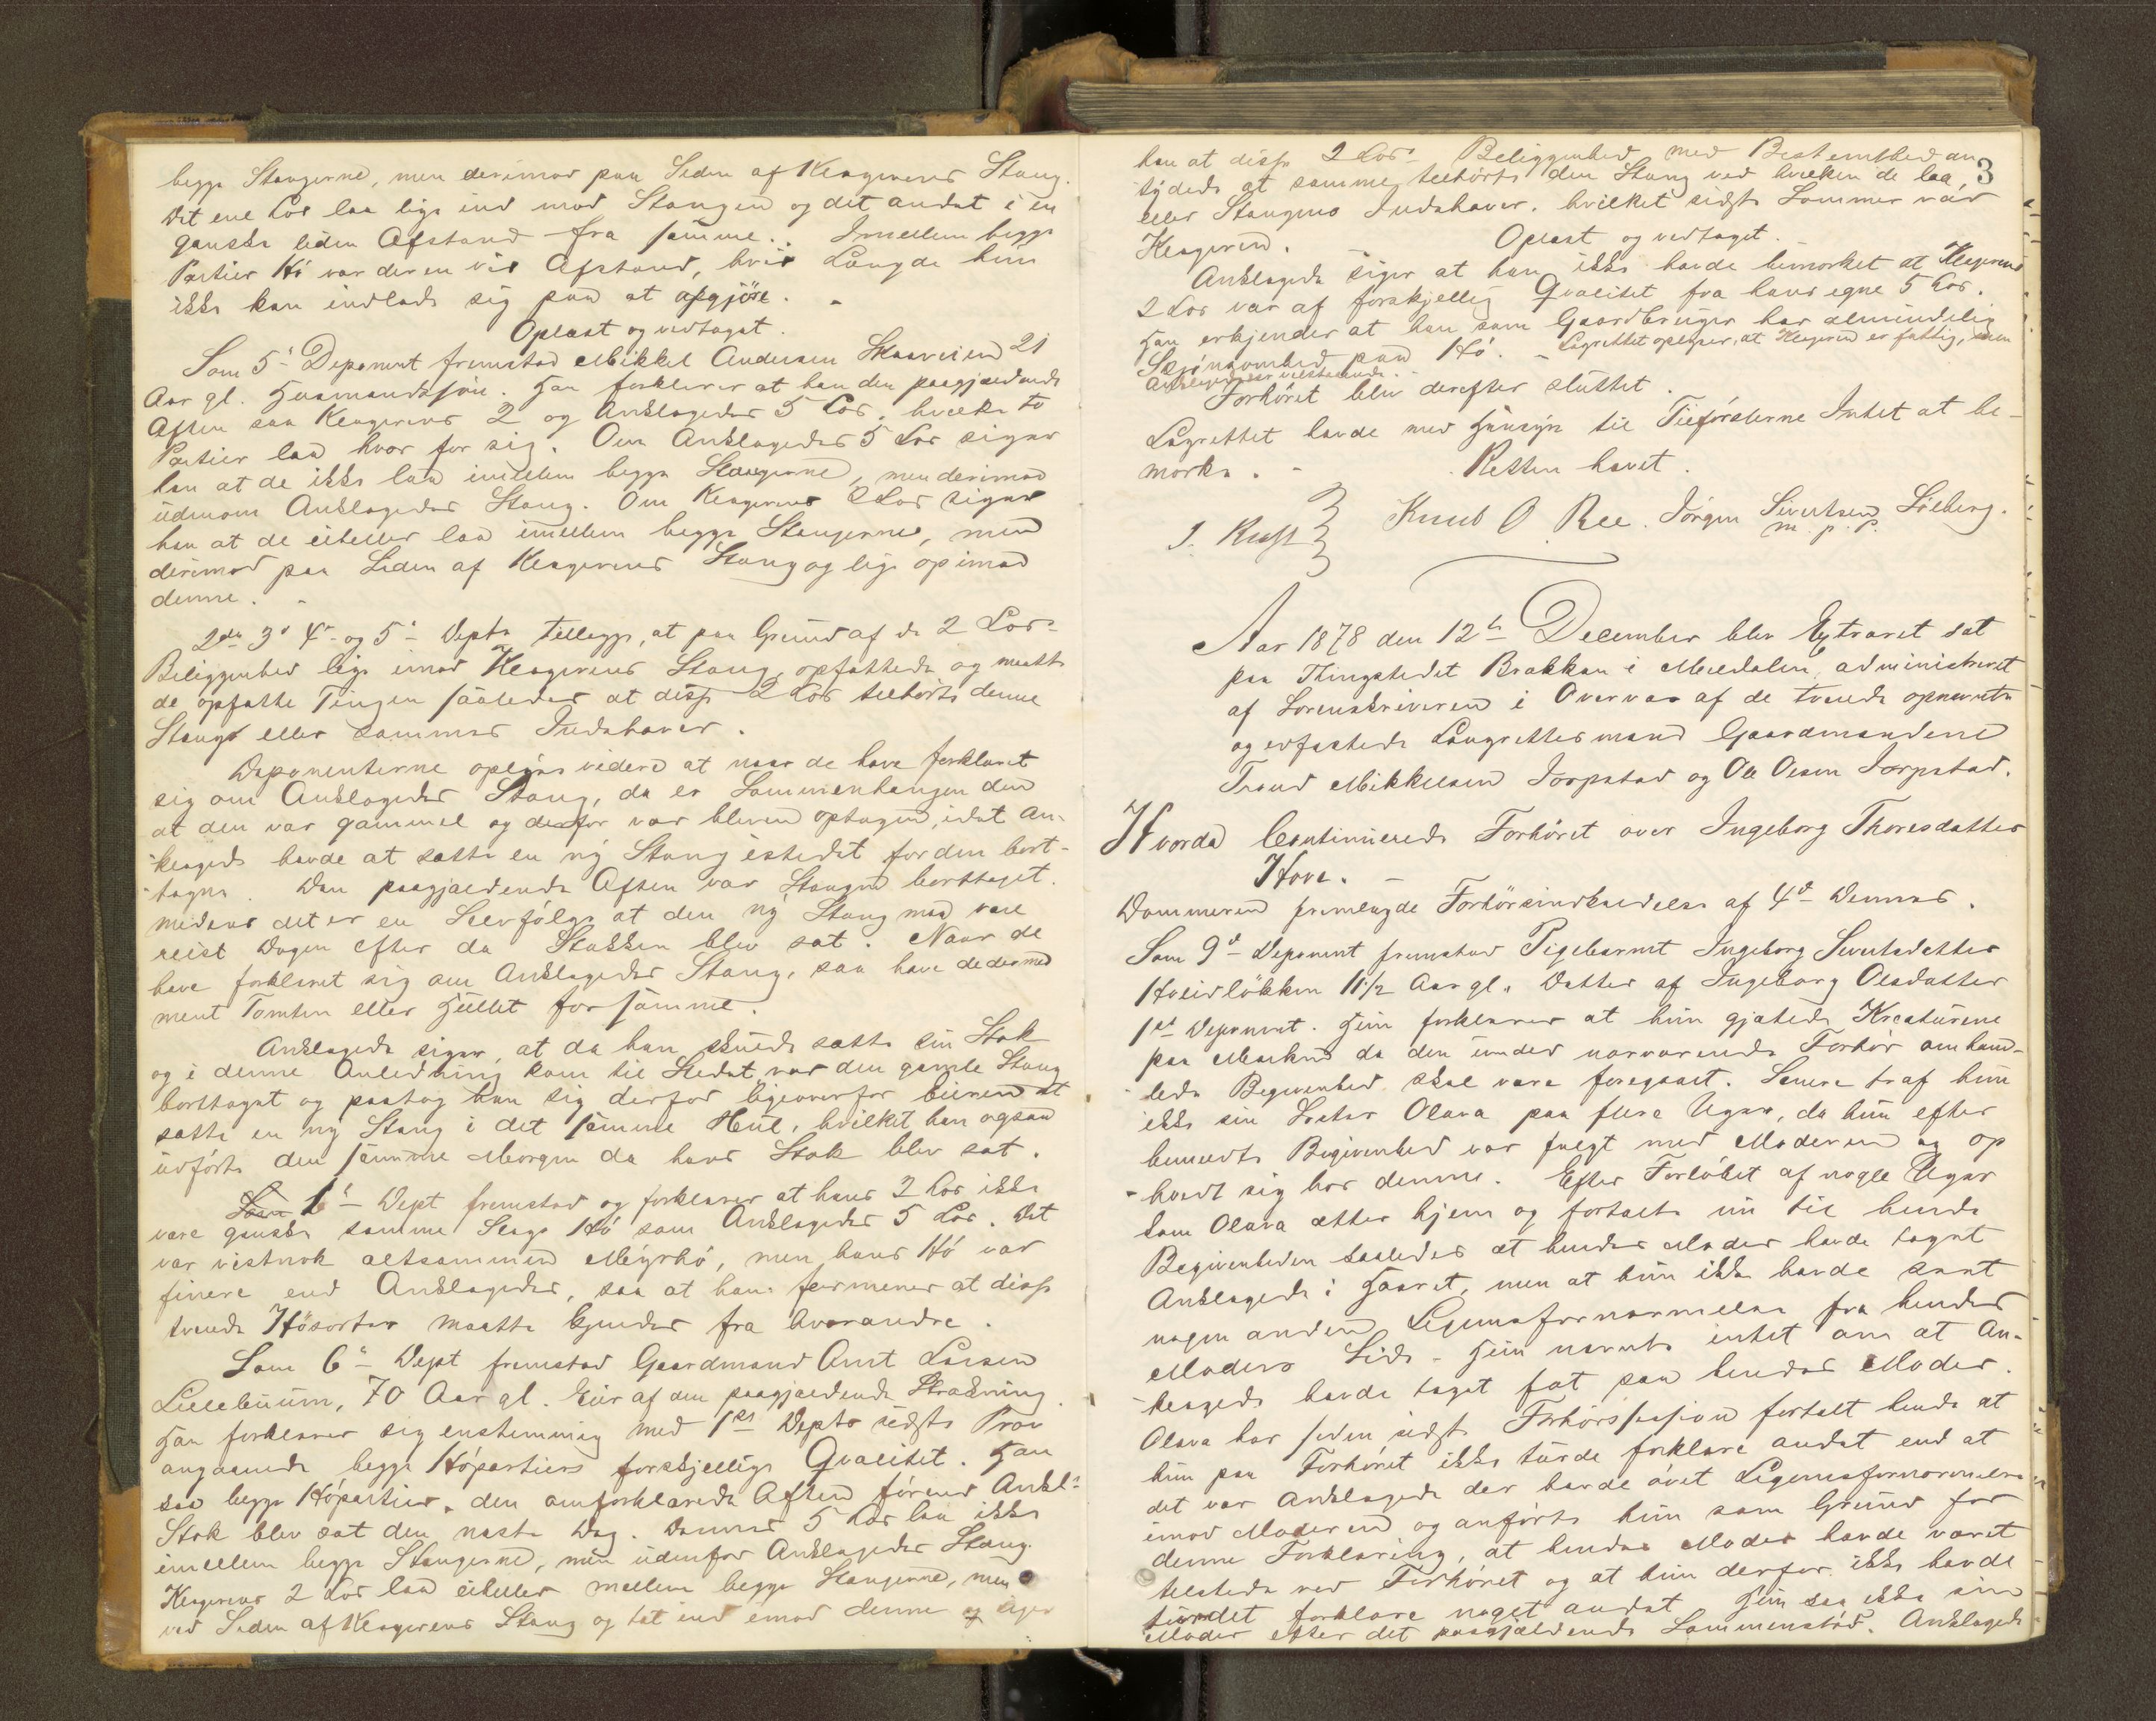 begge Stængerne, men derimod paa Siden af Klagerens Stang.
Det ene Læs laa lige ind mod Stangen og det andet i en
ganske liden Afstand fra samme. Imellem begge
Partier Hö var der en vis Afstand, hvis Længde hun
ikke kan indlade sig paa at afgjöre. -
Oplæst og vedtaget.
Som 5te Deponent fremstod Mikkel Andersen Skaarveien 21
Aar gl. Huusmandssön. Han forklarer at han den paagjældende
Aften saa Klagerens 2 og Anklagedes 5 Læs, hvilke to
Partier laa hver for sig. Om Anklagedes 5 Læs siger
han at de ikke laa imellem begge Stængerne, men derimod
udenom Anklagedes Stang. Om Klagerens 2 Læs siger
han at de eiheller laa imellem begge Stængerne, men
derimod paa Siden af Klagerens Stang og lige op imod
denne. -
2den 3die 4de og 5te Depts tillægge, at paa Grund af de 2 Læs's
Beliggenhed lige imod Klagerens Stang opfattede og maatte
de opfatte Tingen saaledes at disse 2 Læs tilhörte denne
Stang eller sammes Indehaver.
Deponenterne oplyse videre at naar de have forklaret
sig om Anklagedes Stang, da er Sammenhængen den
at den var gammel og derfor var bleven optagen, idet An-
klagede havde at sætte en ny Stang istedet for den bort-
tagne. Den paagjældende Aften var Stangen borttaget.
medens det er en Selvfölge at den ny Stang maa være
reist Dagen efter da Stakken blev sat. Naar de
have forklaret sig om Anklagedes Stang, saa have de dermed
ment Tomten eller Hullet for samme.
Anklagede siger, at da han skulde sætte sin Stak
og i denne Anledning kom til Stedet, var den gamle Stang
borttaget og paatog han sig derfor ligeoverfor Eieren at
sætte en ny Stang i det samme Hul, hvilket han ogsaa
udförte den samme Morgen da hans Stak blev sat.
Som 1ste Dept fremstod og forklarer at hans 2 Læs ikke
vare ganske samme Slags Hö som Anklagedes 5 Læs. Det
var vistnok altsammen Myrhö, men hans Hö var
finere end Anklagedes, saa at han formener at disse
tvende Hösorter maatte kjendes fra hverandre.
Som 6te Dept fremstod Gaardmand Arnt Larsen
Lillebuum, 70 Aar gl. Eier af den paagjældende Strækning
Han forklarer sig enstemmig med 1ste Depts sidste Prov
angaaende begge Höpartiers forskjellige Qvalitet. Han
saa begge Höpartier den omforklarede Aften förend Ankl's
Stak blev sat den næste Dag. Dennes 5 Læs laa ikke
imellem begge Stængerne, men udenfor Anklagedes Stang.
Klagerens 2 Læs laa eiheller mellem begge Stængerne, men
ved Siden af Klagerens Stang og tæt ind imod denne og siger
3
han at disse 2 Læs's Beliggenhed med Bestemthed an-
tydede at samme tilhörte den Stang ved hvilken de laa,
eller Stangens Indehaver, hvilket sidste Sommer var
Klageren. Oplæst og vedtaget.
Anklagede siger at han ikke havde bemærket at Klagerens
2 Læs var af forskjellig Qvalitet fra hans egne 5 Læs.
Han erkjender at han som Gaardbruger har almindelig
Skjönsomhed paa Hö. - Lagrettet oplyser, at Klageren er fattig, men
Anklagede er velstaaende. -
Forhöret blev derefter sluttet.
Lagrettet havde med Hensyn til Tilförslerne Intet at be-
mærke. - Retten hævet.
J. Kraft Knud O. Ree. Jörgen Sivertsen Sæberg.
m. p. P.
Aar 1878 den 12te December blev Extraret sat
paa Thingstedet Brakkan i Meldalen, administreret
af Sorenskriveren i Overvær af de tvende opnævnte
og edfæstede Laugrettesmænd Gaardmændene
Trond Mikkelsen Jerpstad og Ole Olsen Jerpstad.
Hvorda Continuerede Forhöret over Ingeborg Thoresdatter
Hove. -
Dommeren fremlagde Forhörsindkaldelse af 4de Dennes.
Som 9de Deponent fremstod Pigebarnet Ingeborg Sivertsdatter
Hveidlökken 11 1/2 Aar gl. Datter af Ingeborg Olsdatter
1ste Deponent. Hun forklarer at hun gjætede Kreaturene
paa Marken da den under nærværende Forhör omhand-
lede Begivenhed skal være foregaaet. Senere traf hun
ikke sin Söster Olava paa flere Uger, da hun efter
benævnte Begivenhed var fulgt med Moderen og op-
holdt sig hos denne. Efter Forlöbet af nogle Uger
kom Olava etter hjem og fortalte nu til hende
Begivenheden saaledes at hendes Moder havde taget
Anklagede i Haaret, men at hun ikke havde seet
nogen anden Legemsfornærmelse fra hendes
Moders Side. - Hun nævnte intet om at An-
klagede havde taget fat paa hendes Moder.
Olava har siden sidste Forhörssession fortalt hende at
hun paa Forhöret ikke turde forklare andet end at
det var Anklagede der havde övet Legemsfornærmelse
imod Moderen og anförte hun som Grund for
denne Forklaring, at hendes Moder havde været
tilstede ved Forhöret og at hun derfor ikke havde
turdet forklare noget andet. Hun saa ikke sin
Moder efter det paagjældende Sammenstöd. Anklagede